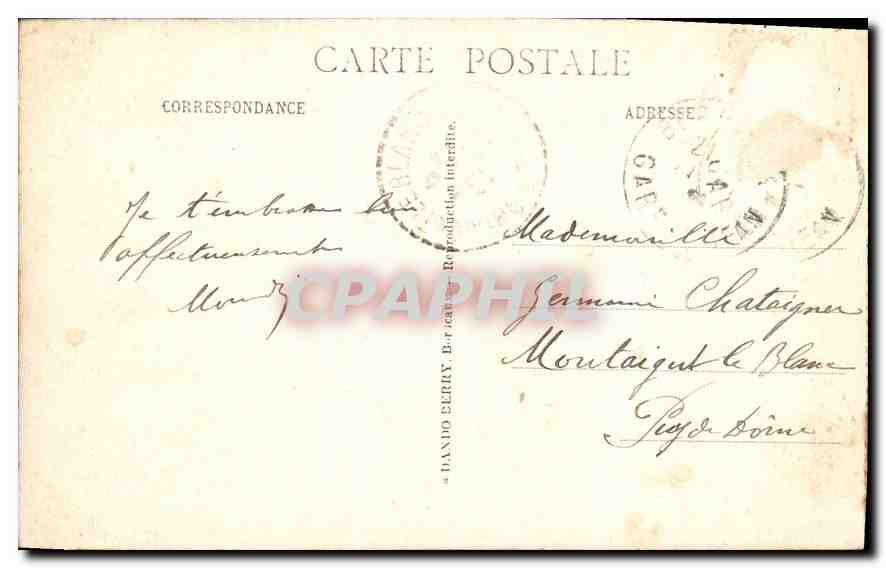 CARTE POSTALE
CORRESPONDANCE
ADRESSE
Je t'embrasse bien
affectueusement
Mademoiselle
Germaine Chataigner
Montaigut le Blanc
Puy de Dôme
DANDO BERRY, Bordeaux - Reproduction interdite.
CPAPHIL